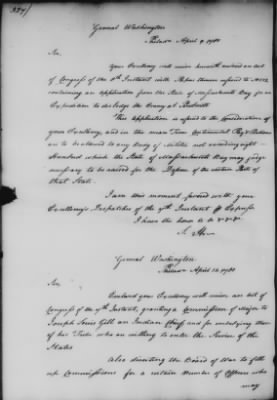 General Washington
Philad<sup>a</sup> April 9 1780
Sir,
Your Excellency will receive herewith enclosed an Act
of Congress of the 8th Instant with Papers therein referred to
containing an application from the State of Massachusetts Bay for an
Expedition to dislodge the Enemy at Penobscott
This application is referred to the Consideration of
your Excellency, and in the mean Time Continental Pay & Rations
are to be allowed to any Body of Militia not exceeding eight
Hundred which the State of Massachusetts Bay may judge
necessary to be raised for the Defence of the eastern Parts of
that State.
I am this moment favored with your
Excellency's Dispatches of the Instant Express
I have the honor to be &c &c
S. H.
General Washington
Philad<sup>a</sup> April 12. 1780
Sir,
Enclosed your Excellency will receive an Act of
Congress of the Instant, granting a Commission of Major to
Joseph Louis Gill an Indian Chief, and for embodying them
of his Tribe who are willing to enter the Service of the
States
Also directing the Board of War to fill
up Commissions for a certain Number of Officers who
may